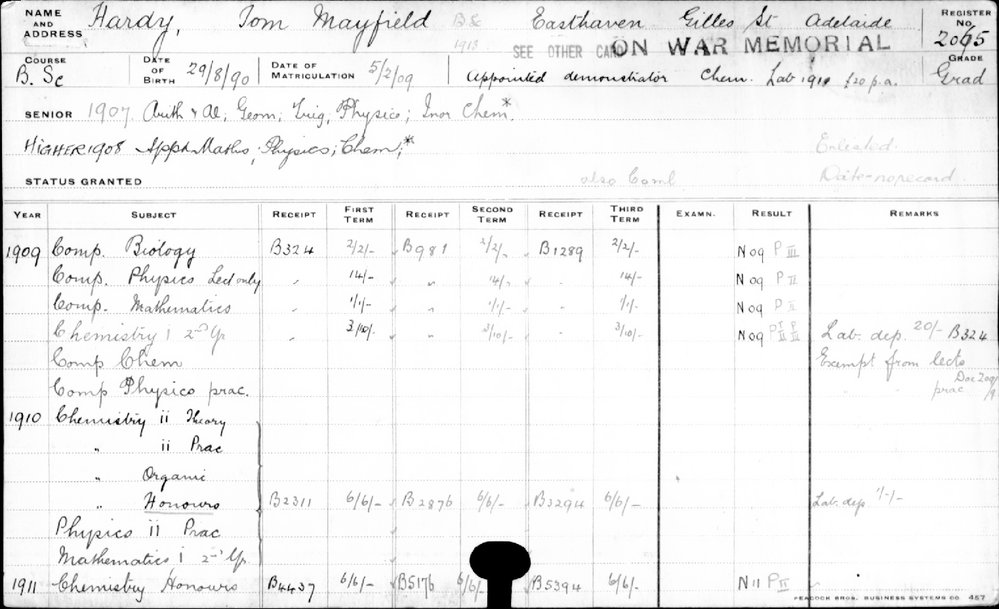 NAME AND ADDRESS Hardy, Tom Mayfield BSc Easthaven Gilles St Adelaide REGISTER No. 2095
1913 SEE OTHER CARD ON WAR MEMORIAL
COURSE B. Sc DATE OF BIRTH 29/8/90 DATE OF MATRICULATION 5/2/09 Appointed demonstrator Chem. Lab 1910 £20 p.a. GRADE Grad
SENIOR 1907 Arith & Al; Geom; Trig, Physics; Inor Chem.*
HIGHER 1908 Appd Maths, Physics; Chem;* Enlisted.
STATUS GRANTED also Camb Date-no record
YEAR SUBJECT RECEIPT FIRST TERM RECEIPT SECOND TERM RECEIPT THIRD TERM EXAMN. RESULT REMARKS
1909 Comp. Biology B324 2/2/- B981 2/2/- B1289 2/2/- N09 P III
Comp. Physics Lect only " 14/- " 14/- " 14/- N09 P II
Comp. Mathematics " 1/1/- " 1/1/- " 1/1/- N09 P II
Chemistry i 2nd Yr " 3/10/- " 3/10/- " 3/10/- N09 Lab. dep. 20/- B324
Comp Chem Exempt from lects
Comp Physics prac. " prac Doc 200/9
1910 Chemistry ii Theory
" ii Prac
" Organic
" Honours B2311 6/6/- B2876 6/6/- B3294 6/6/- Lab. dep 1/-/-
Physics ii Prac
Mathematics i 2nd Yr
1911 Chemistry Honours B4437 6/6/- B5176 6/6/- B5394 6/6/- N11 P II
PEACOCK BROS. BUSINESS SYSTEMS CO. 457